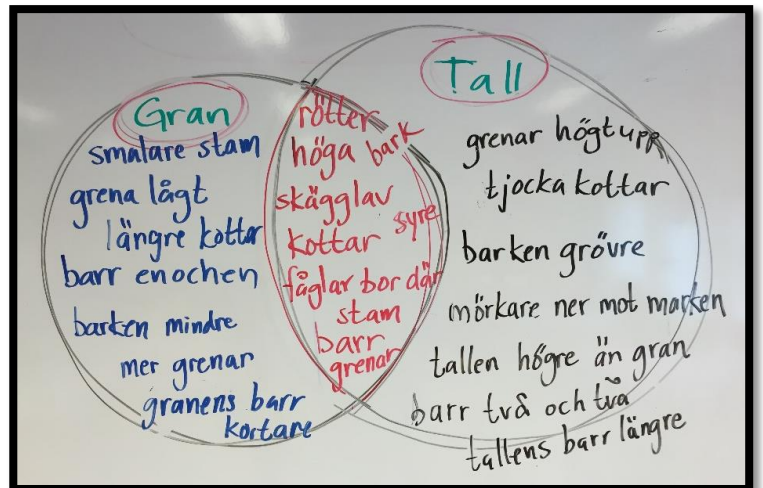 Gran
smalare stam
grena lågt
längre kottar
barr enochen
barken mindre
mer grenar
granens barr
kortare
rötter
höga bark
skägglav
syre
kottar
fåglar bor där
stam
barr
grenar
Tall
grenar högt upp
tjocka kottar
barken grövre
mörkare ner mot marken
tallen högre än gran
barr två och två
tallens barr längre